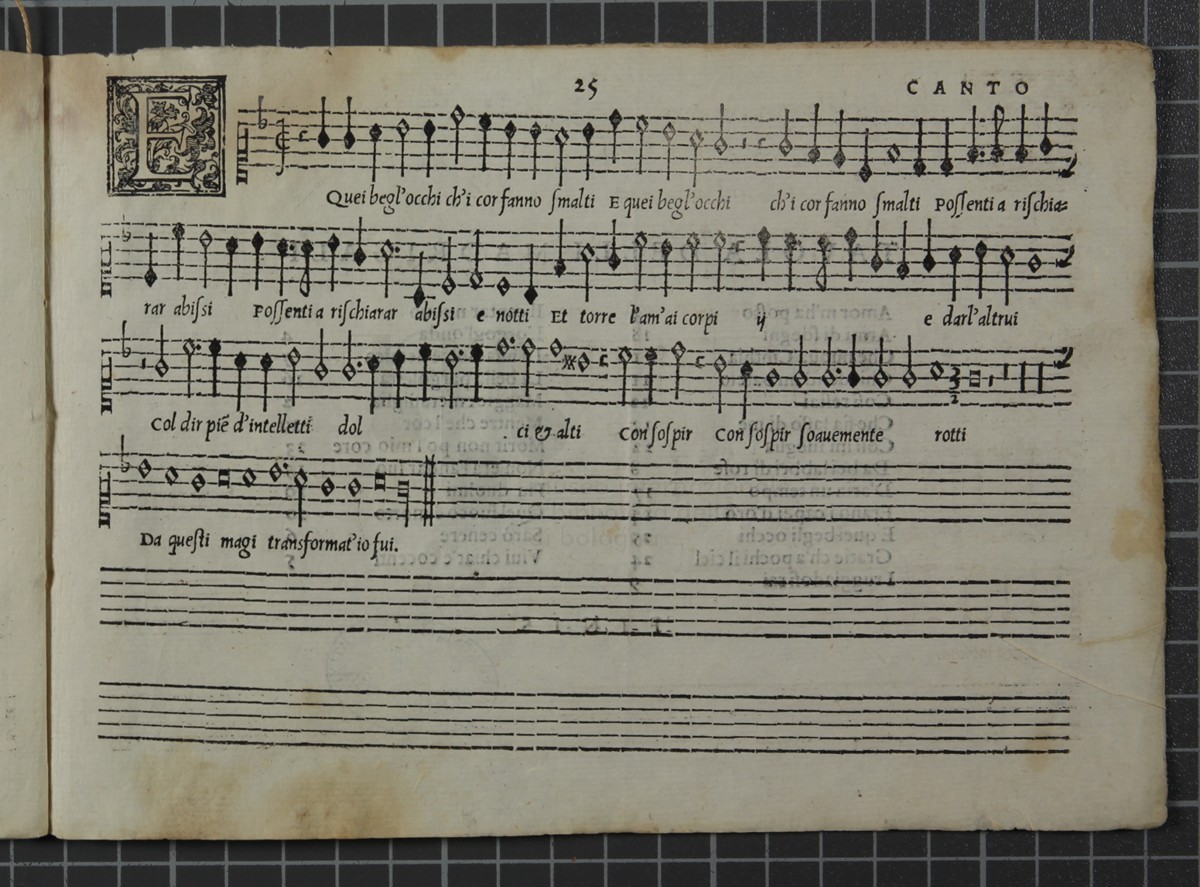 25 CANTO
E Quei begl'occhi ch'i cor fanno ſmalti E quei begl'occhi ch'i cor fanno ſmalti Poſſenti a riſchia=
rar abiſsi Poſſenti a riſchiarar abiſsi e notti Et torre l'am'ai corpi ij e darl'altrui
Col dir piẽ d'intelletti dol ci & alti Con ſoſpir Con ſoſpir ſoauemente rotti
Da queſti magi transformat'io fui.